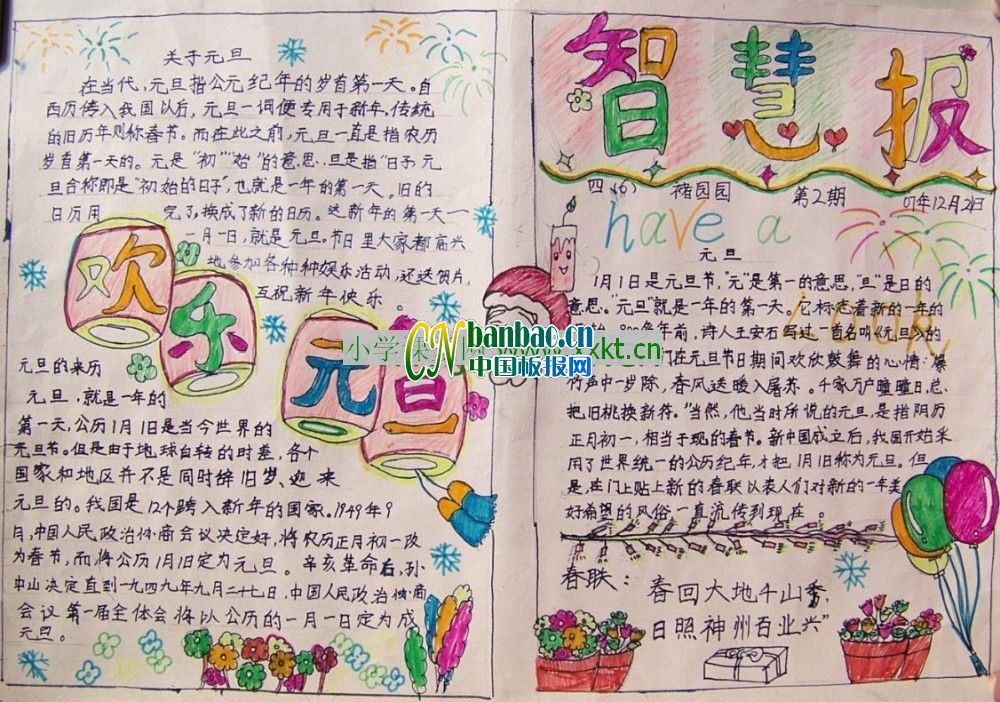 关于元旦
在当代,元旦指公元纪年的岁首第一天。自
西历传入我国以后,元旦一词便专用于新年,传统
的旧历年则称春节。而在此之前,元旦一直是指农历
岁首第一天的。元是"初""始"的意思,旦是指"日子"元
旦合称即是"初始的日子",也就是一年的第一天。旧的
日历用完了,换成了新的日历。这新年的第一天一
一月一日,就是元旦。节日里大家都高兴
地参加各种种娱乐活动,还送贺片,
互祝新年快乐。
欢乐元旦
元旦的来历
元旦,就是一年的
第一天,公历1月1日是当今世界的
元旦节。但是由于地球自转的时差,各个
国家和地区并不是同时辞旧岁、迎来
元旦的。我国是12个跨入新年的国家。1949年9
日,中国人民政治协商会议决定好,将农历正月初一改
为春节,而将公历1月1日定为元旦。辛亥革命后,孙
中山决定直到一九四九年九月二十七日,中国人民政治协商
会议第一届全体会将以公历的一月一日定为成
元旦。
智慧报
四(6) 褚园园 第2期 07年12月2日
have a
元旦
1月1日是元旦节,"元"是第一的意思,"旦"是日的
意思。"元旦"就是一年的第一天。它标志着新的一年的
年前,诗人王安石写过一首名叫《元旦》的
们在元旦节日期间欢欣鼓舞的心情:爆
竹声中一岁除,春风送暖入屠苏。千家万户曈曈日,总
把旧桃换新符。"当然,他当时所说的元旦,是指阴历
正月初一,相当于现的春节。新中国成立后,我国开始采
用了世界统一的公历纪年,才把1月1日称为元旦。但
是,在门上贴上新的春联以表人们对新的一年美
好希望的风俗一直流传到现在。
春联:
春回大地千山秀
日照神州百业兴"
banbao.cn
中国板报网
小学 www. xkt.cn